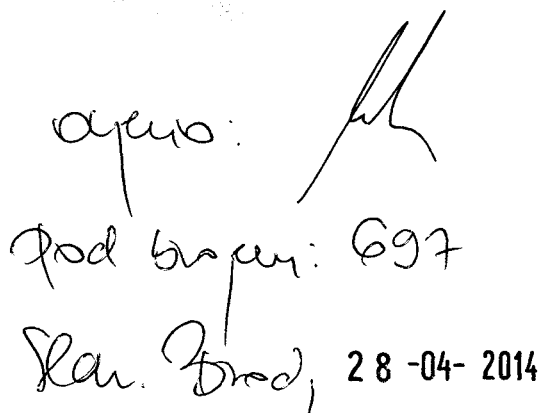 Ovjerio:
Pod brojem: 697
Slav. Brod, 28 -04- 2014